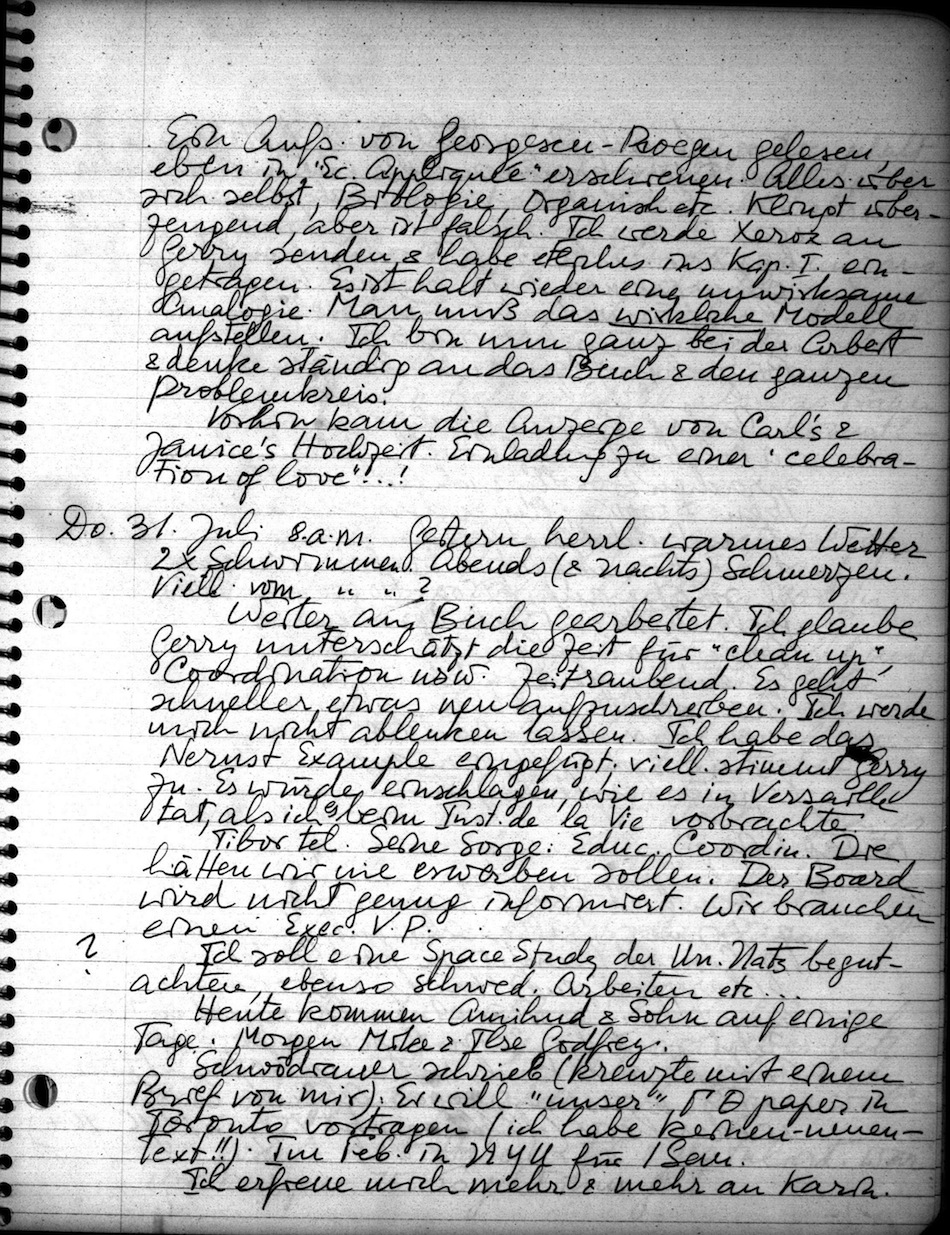 Ein Aufs. von Georgescu-Roegen gelesen,
eben in "Ec. Appliquée" erschienen. Alles über
sich selbst, Biologie, Organisch etc. Klingt über-
zeugend, aber ist falsch. Ich werde Xerox an
Gerry senden & habe etc ins Kap. I. ein-
getragen. Es ist halt wieder eine unwirksame
Analogie. Man muß das wirkliche Modell
aufstellen. Ich bin nun ganz bei der Arbeit
& denke ständig an das Buch & den ganzen
Problemkreis.
Vorhin kam die Anzeige von Carl's &
Janice's Hochzeit. Einladung zu einer "celebra-
tion of love"!..!
Do. 31. Juli 8.a.m. Gestern herrl. warmes Wetter
2x Schwimmen. Abends (& nachts) Schmerzen.
Viell. vom " " ?
Weiter am Buch gearbeitet. Ich glaube
Gerry unterschätzt die Zeit für "clean up",
Coordination usw. Zeitraubend. Es geht
schneller etwas neu aufzuschreiben. Ich werde
mich nicht ablenken lassen. Ich habe das
Nernst Example eingefügt; viell. stimmt Gerry
zu. Es würde einschlagen, wie es in Versailles
tat, als ich es beim Inst. de la Vie vorbrachte.
Tibor tel. Seine Sorge: Educ. Coordin. Die
hätten wir nie erwerben sollen. Der Board
wird nicht genug informiert. Wir brauchen
einen Exec. V.P.
? Ich soll eine Space Study der Un. Nats begut-
achten, ebenso Schwed. Arbeiten etc...
Heute kommen Amihud & Sohn auf einige
Tage. Morgen Mike & Ilse Godfrey.
Schwödiauer schrieb (kreuzte mit einem
Brief von mir). Er will "unser" ΓΘ paper in
Toronto vortragen (ich habe keinen - neuen -
Text!!). Im Feb. in NYU für 1 Sem.
Ich erfreue mich mehr & mehr an Karin.